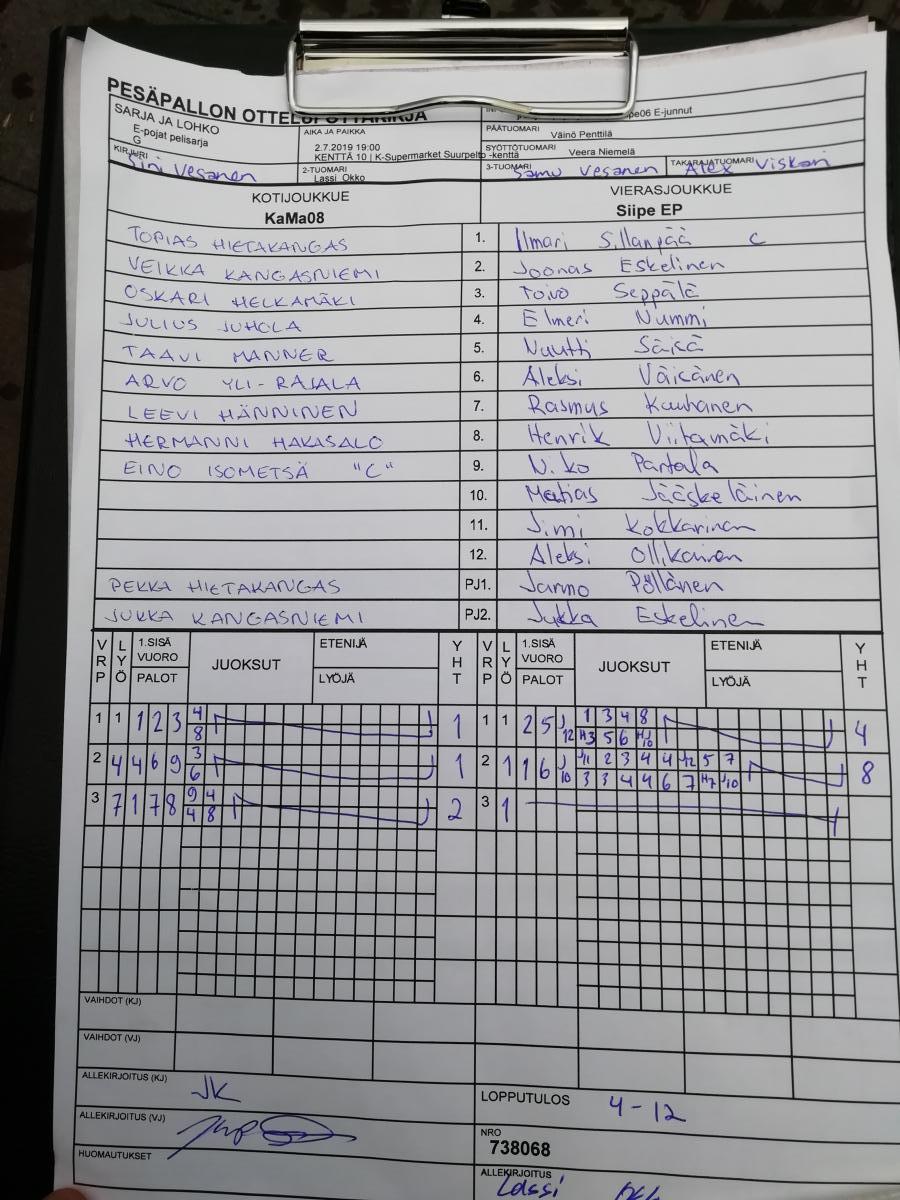 PESÄPALLON OTTELUPÖYTÄKIRJA
SARJA JA LOHKO
E-pojat pelisarja
G
AIKA JA PAIKKA
2.7.2019 19:00
KENTTÄ 10 | K-Supermarket Suurpelto -kenttä
pe06 E-junnut
PÄÄTUOMARI
Väinö Penttilä
SYÖTTÖTUOMARI
Veera Niemelä
KIRJURI
Vesanen
2-TUOMARI
Lassi Okko
3-TUOMARI
Samu Vesanen
TAKARAJATUOMARI
Alex Viskari
KOTIJOUKKUE
KaMa08
VIERASJOUKKUE
Siipe EP
TOPIAS HIETAKANGAS 1. Ilmari Sillanpää C
VEIKKA KANGASNIEMI 2. Joonas Eskelinen
OSKARI HELKAMÄKI 3. Toivo Seppälä
JULIUS JUHOLA 4. Elmeri Nummi
TAAVI MANNER 5. Nuutti Säisä
ARVO YLI-RAJALA 6. Aleksi Väisänen
LEEVI HÄNNINEN 7. Rasmus Kauhanen
HERMANNI HAKASALO 8. Henrik Viitamäki
EINO ISOMETSÄ "C" 9. Niko Partala
10. Matias Jääskeläinen
11. Jimi Kokkarinen
12. Aleksi Ollikainen
PEKKA HIETAKANGAS PJ1. Jarmo Pöllänen
JUKKA KANGASNIEMI PJ2. Jukka Eskelinen
VRP LYÖ 1.SISÄ VUORO PALOT JUOKSUT ETENIJÄ LYÖJÄ YHT VRP LYÖ 1.SISÄ VUORO PALOT JUOKSUT ETENIJÄ LYÖJÄ YHT
1 1 1 2 3 4 1 1 1 2 5 J12 1 3 4 8 4
8 H3 5 6 HJ10
2 4 4 6 9 3 1 2 1 1 6 J10 J11 2 3 4 4 J12 5 7 8
6 3 3 4 4 6 7 H7 J10
3 7 1 7 8 9 4 2 3 1
4 8
VAIHDOT (KJ)
VAIHDOT (VJ)
ALLEKIRJOITUS (KJ)
JK
LOPPUTULOS 4-12
ALLEKIRJOITUS (VJ)
NRO
738068
HUOMAUTUKSET
ALLEKIRJOITUS
Lassi